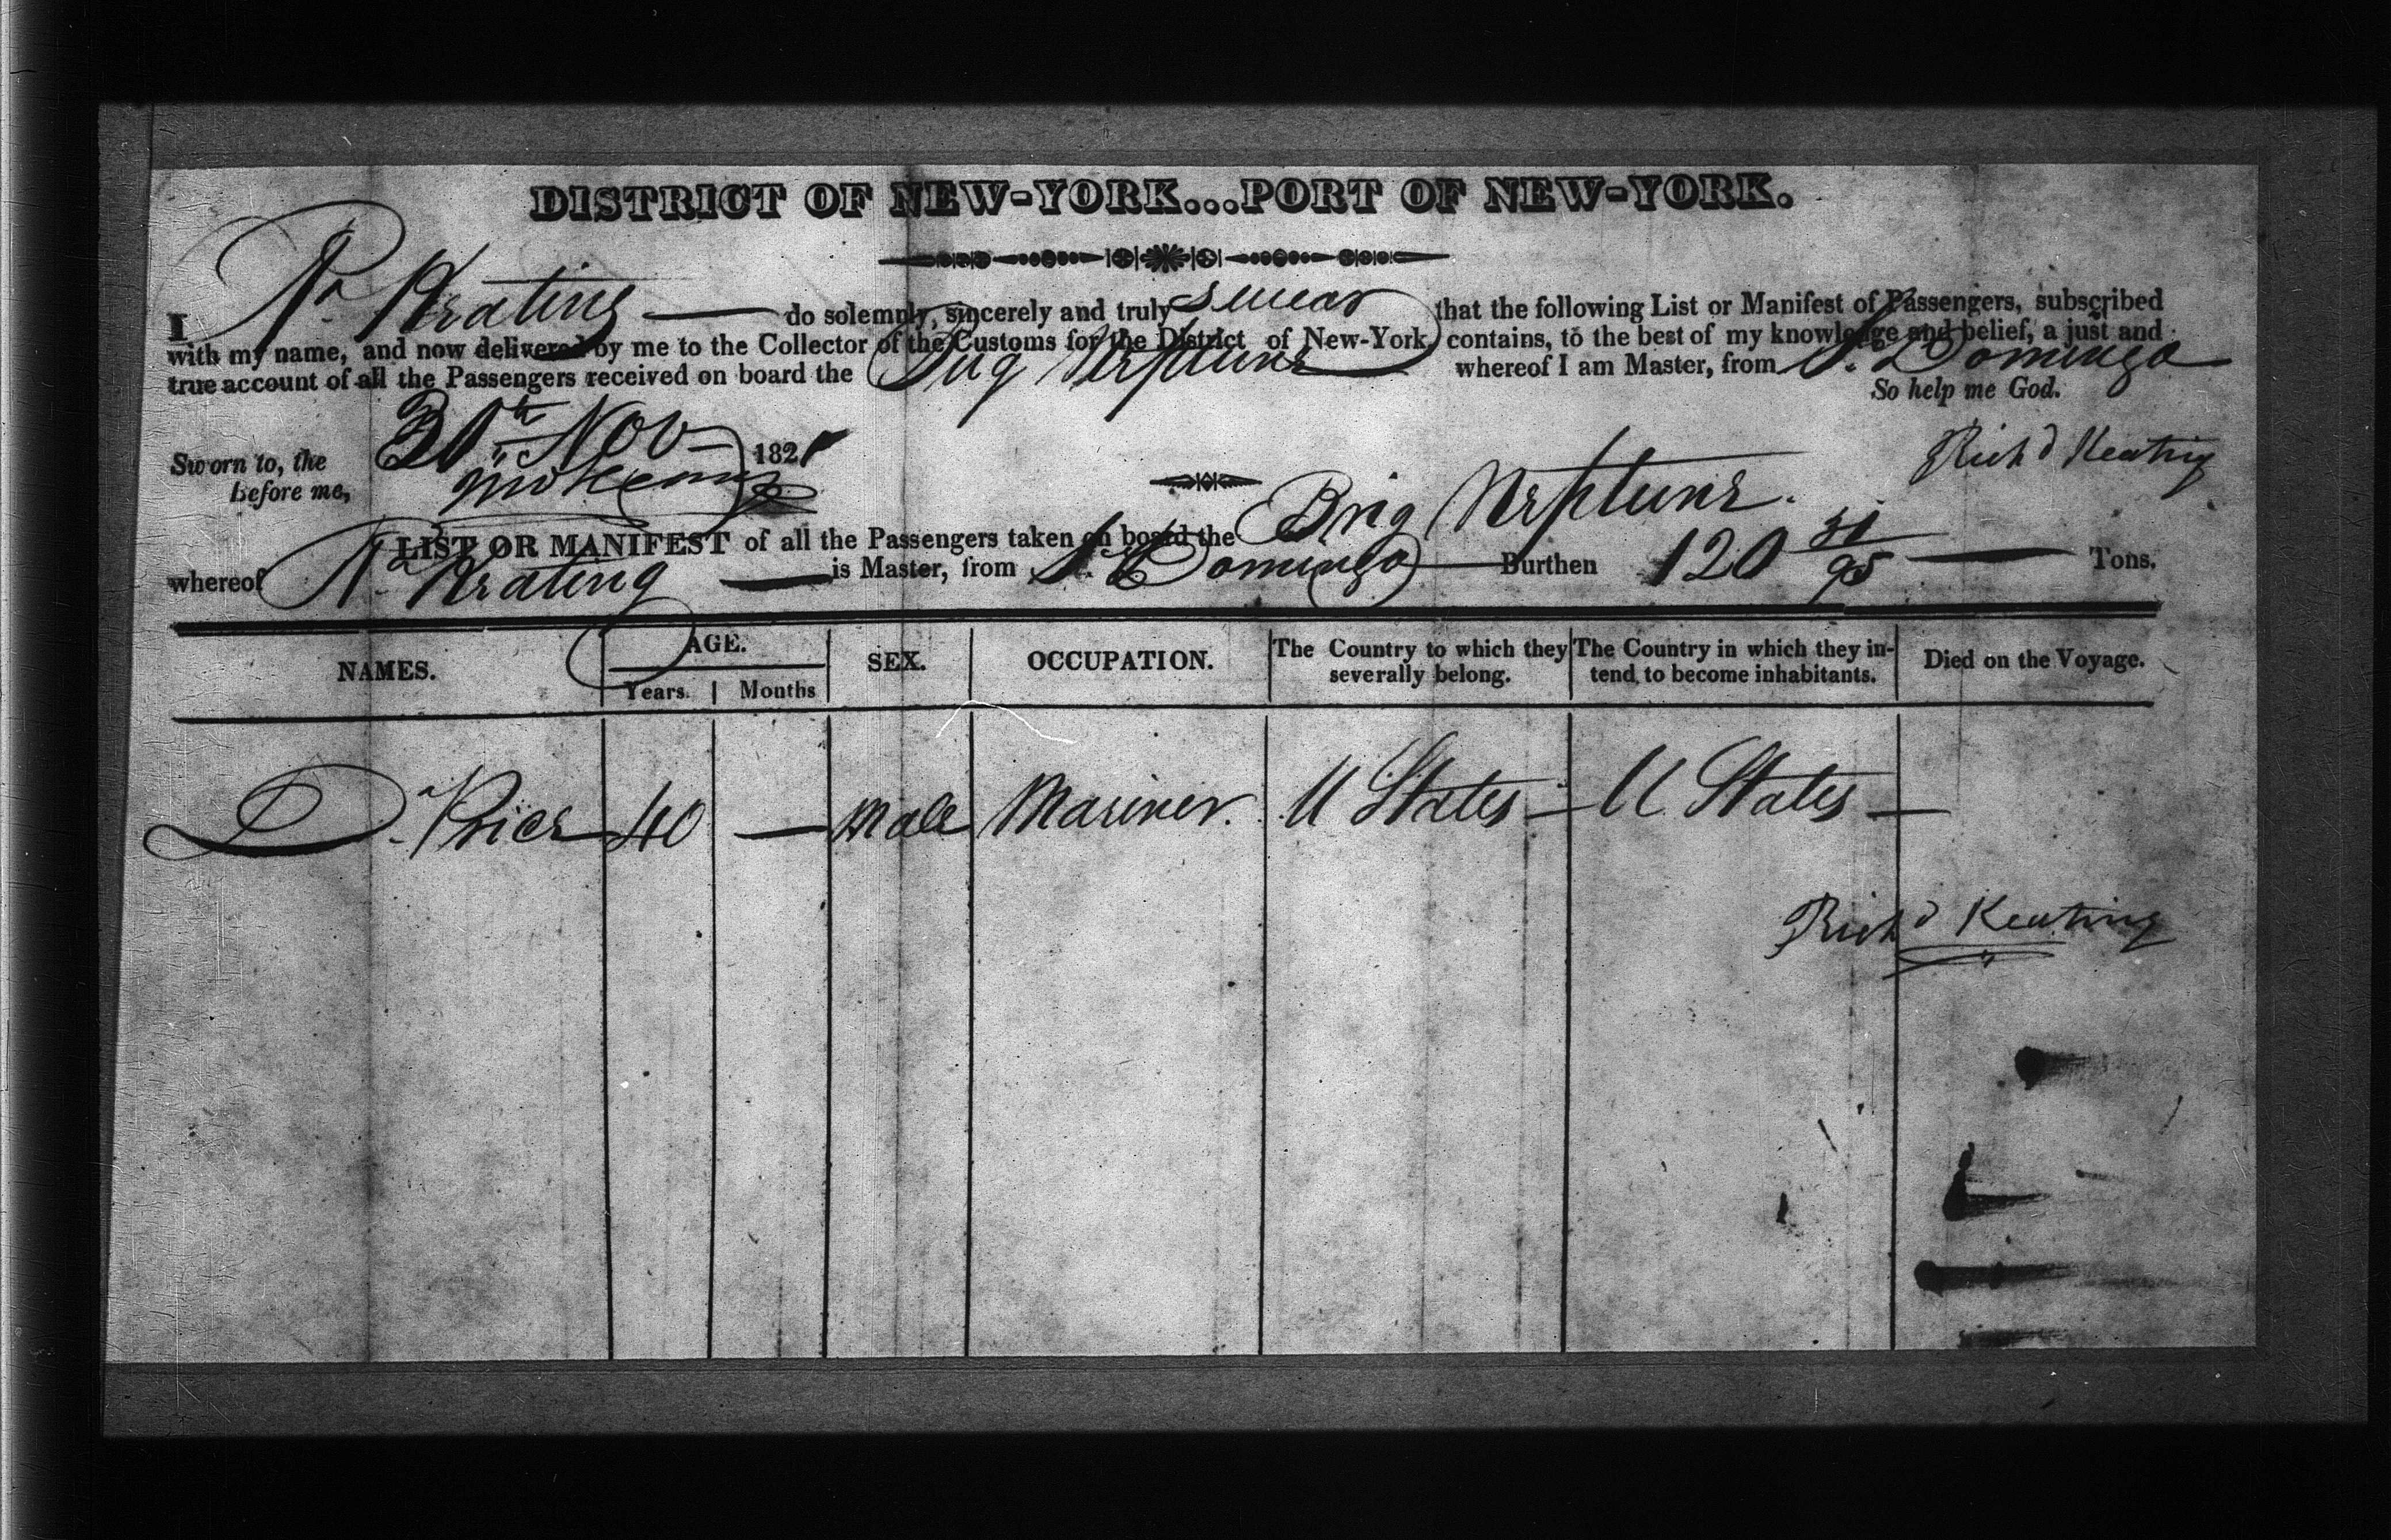 DISTRICT OF NEW-YORK...PORT OF NEW-YORK.
I Rd Keating — do solemnly, sincerely and truly swear that the following List or Manifest of Passengers, subscribed
with my name, and now delivered by me to the Collector of the Customs for the District of New-York, contains, to the best of my knowledge and belief, a just and
true account of all the Passengers received on board the Brig Neptune whereof I am Master, from St. Domingo
So help me God.
Sworn to, the 30th Nov 1821
before me,
Richd Keating
LIST OR MANIFEST of all the Passengers taken on board the Brig Neptune.
whereof Rd Keating — is Master, from St. Domingo — Burthen 120 31/95 — Tons.
NAMES. AGE. SEX. OCCUPATION. The Country to which they severally belong. The Country in which they in- tend to become inhabitants. Died on the Voyage.
Years. Months
D. Price 40 — Male Mariner. U States — U States —
Richd Keating